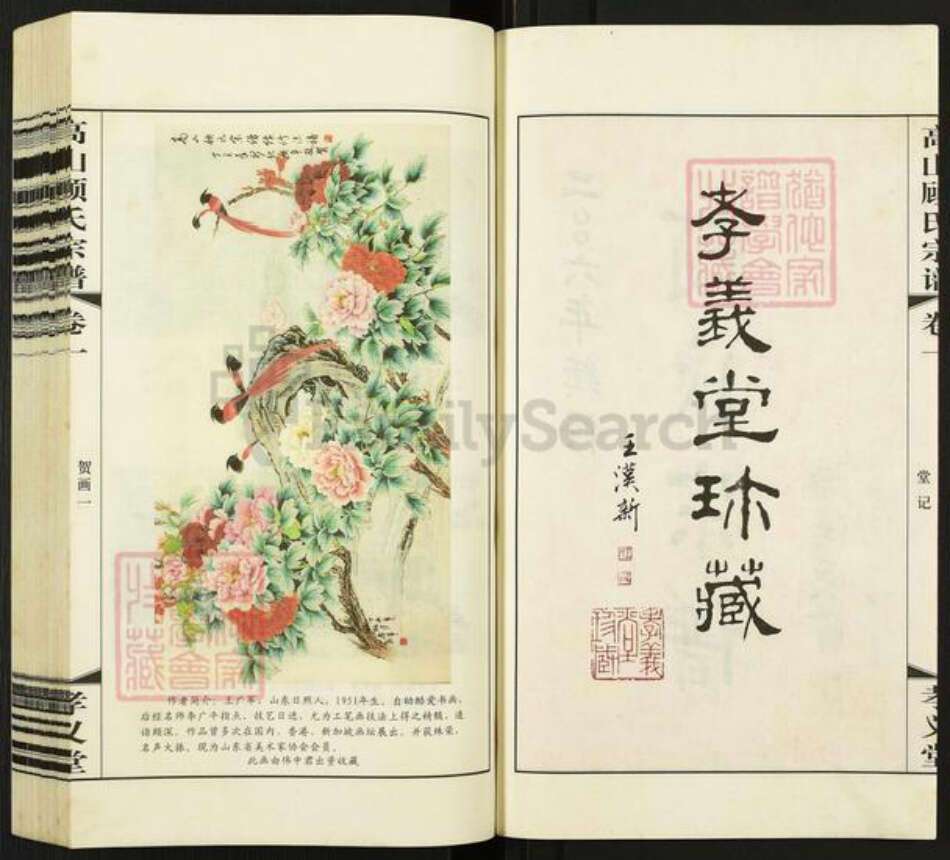 孝義堂珎藏
王漢新
孝義堂珍藏
高山顾氏宗谱 卷一
堂记
孝义堂
高山顾氏宗谱 卷一
贺画一
孝义堂
作者简介：王广军，山东日照人，1951年生，自幼酷爱书画，
后经名师李广平指点，技艺日进，尤为工笔画技法上得之精髓，造
诣颇深，作品曾多次在国内、香港、新加坡画坛展出，并获殊荣，
名声大振，现为山东省美术家协会会员。
此画由伟中君出资收藏
FamilySearch